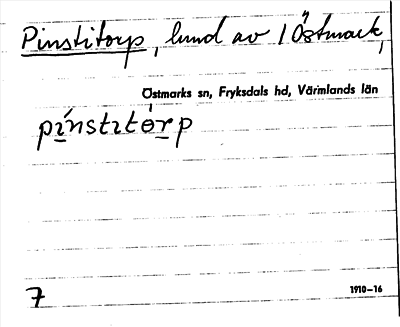 Pinstitorp, lund av 1 Östmark,
Östmarks sn, Fryksdals hd, Värmlands län
pínstɩtòrp
7
1910–16